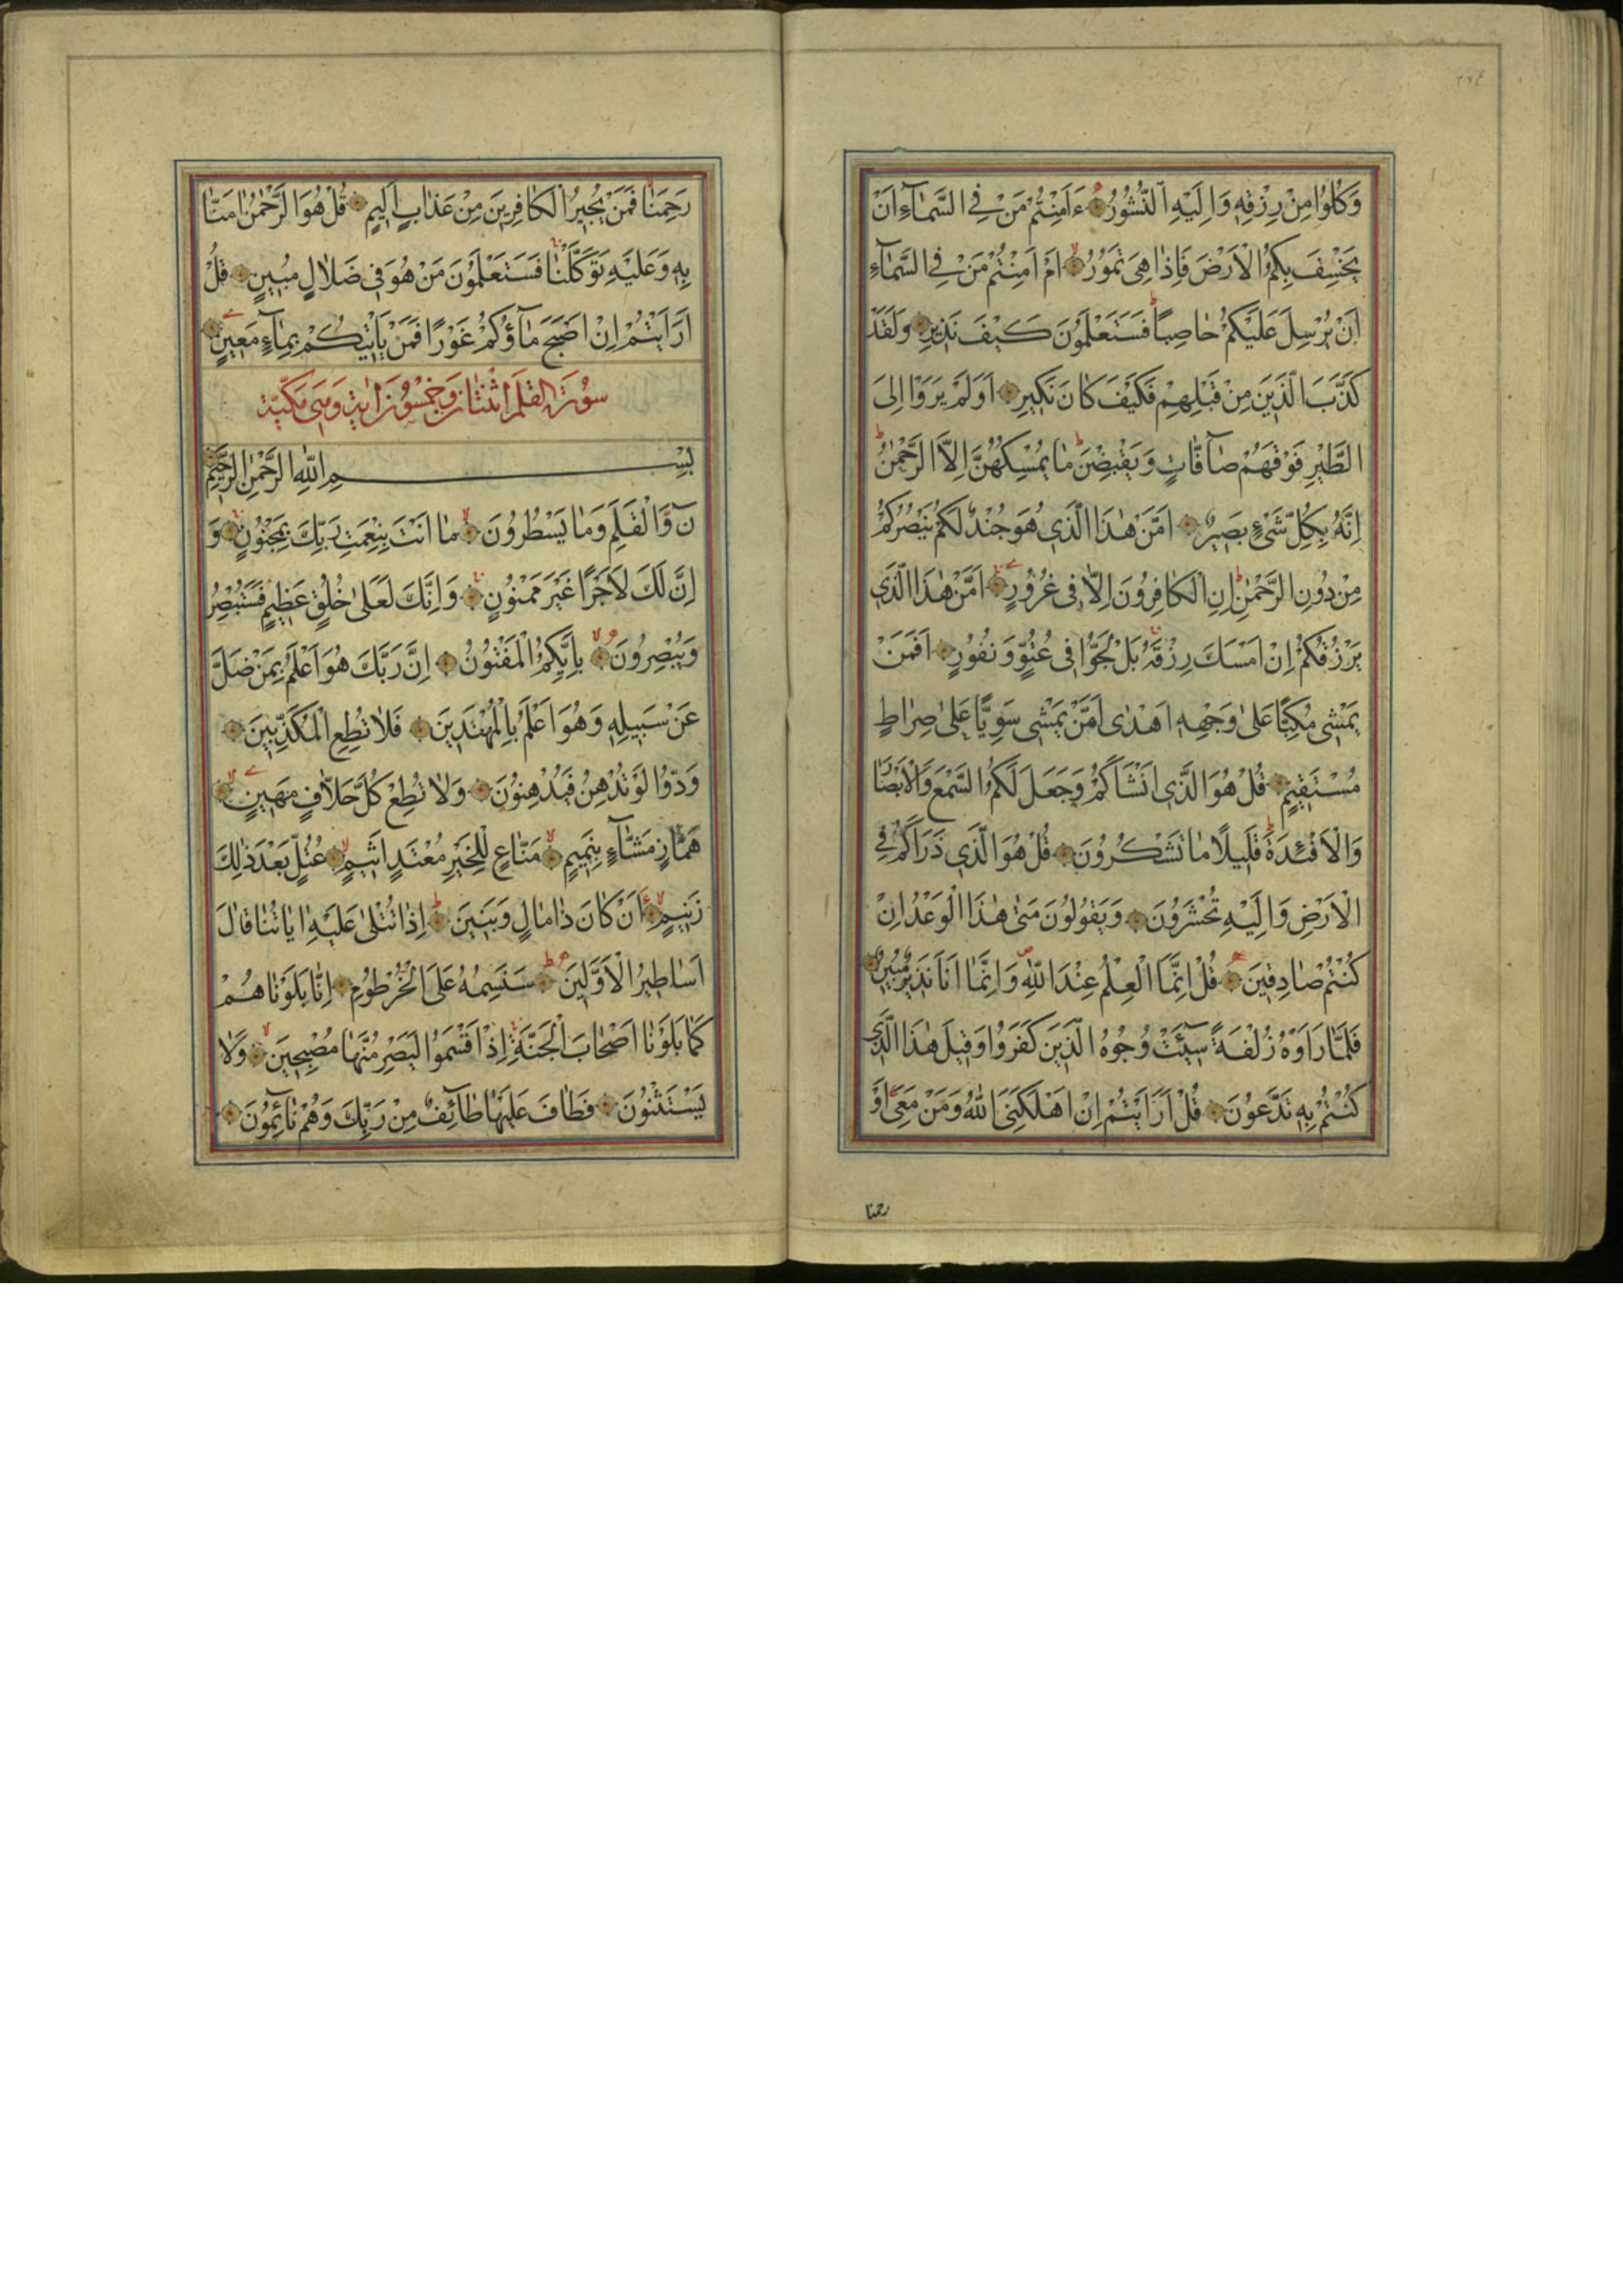 وَكُلُوا مِنْ رِزْقِهِ وَاِلَيْهِ النُّشُورُ ءَاَمِنْتُمْ مَنْ فِي السَّمَآءِ اَنْ
يَخْسِفَ بِكُمُ الْاَرْضَ فَاِذَا هِيَ تَمُورُ اَمْ اَمِنْتُمْ مَنْ فِي السَّمَآءِ
اَنْ يُرْسِلَ عَلَيْكُمْ حَاصِباً فَسَتَعْلَمُونَ كَيْفَ نَذِيرِ وَلَقَدْ
كَذَّبَ الَّذِينَ مِنْ قَبْلِهِمْ فَكَيْفَ كَانَ نَكِيرِ اَوَلَمْ يَرَوْا اِلَى
الطَّيْرِ فَوْقَهُمْ صَآفَّاتٍ وَيَقْبِضْنَ مَا يُمْسِكُهُنَّ اِلَّا الرَّحْمٰنُ
اِنَّهُ بِكُلِّ شَيْءٍ بَصِيرٌ اَمَّنْ هٰذَا الَّذِي هُوَ جُنْدٌ لَكُمْ يَنْصُرُكُمْ
مِنْ دُونِ الرَّحْمٰنِ اِنِ الْكَافِرُونَ اِلَّا فِي غُرُورٍ اَمَّنْ هٰذَا الَّذِي
يَرْزُقُكُمْ اِنْ اَمْسَكَ رِزْقَهُ بَلْ لَجُّوا فِي عُتُوٍّ وَنُفُورٍ اَفَمَنْ
يَمْشِي مُكِبًّا عَلَى وَجْهِهِ اَهْدٰى اَمَّنْ يَمْشِي سَوِيًّا عَلَى صِرَاطٍ
مُسْتَقِيمٍ قُلْ هُوَ الَّذِي اَنْشَاَكُمْ وَجَعَلَ لَكُمُ السَّمْعَ وَالْاَبْصَارَ
وَالْاَفْئِدَةَ قَلِيلًا مَا تَشْكُرُونَ قُلْ هُوَ الَّذِي ذَرَاَكُمْ فِي
الْاَرْضِ وَاِلَيْهِ تُحْشَرُونَ وَيَقُولُونَ مَتٰى هٰذَا الْوَعْدُ اِنْ
كُنْتُمْ صَادِقِينَ قُلْ اِنَّمَا الْعِلْمُ عِنْدَ اللّٰهِ وَاِنَّمَا اَنَا نَذِيرٌ مُبِينٌ
فَلَمَّا رَاَوْهُ زُلْفَةً سِيٓئَتْ وُجُوهُ الَّذِينَ كَفَرُوا وَقِيلَ هٰذَا الَّذِي
كُنْتُمْ بِهِ تَدَّعُونَ قُلْ اَرَاَيْتُمْ اِنْ اَهْلَكَنِيَ اللّٰهُ وَمَنْ مَعِيَ اَوْ
رحمنا
رَحِمَنَا فَمَنْ يُجِيرُ الْكَافِرِينَ مِنْ عَذَابٍ اَلِيمٍ قُلْ هُوَ الرَّحْمٰنُ اٰمَنَّا
بِهِ وَعَلَيْهِ تَوَكَّلْنَا فَسَتَعْلَمُونَ مَنْ هُوَ فِي ضَلَالٍ مُبِينٍ قُلْ
اَرَاَيْتُمْ اِنْ اَصْبَحَ مَآؤُكُمْ غَوْرًا فَمَنْ يَاْتِيكُمْ بِمَآءٍ مَعِينٍ
سُورَة القلم اثنتان وخمسون اية وهي مكية
بِسْمِ اللّٰهِ الرَّحْمٰنِ الرَّحِيمِ
نٓ وَالْقَلَمِ وَمَا يَسْطُرُونَ مَا اَنْتَ بِنِعْمَتِ رَبِّكَ بِمَجْنُونٍ وَ
اِنَّ لَكَ لَاَجْرًا غَيْرَ مَمْنُونٍ وَاِنَّكَ لَعَلٰى خُلُقٍ عَظِيمٍ فَسَتُبْصِرُ
وَيُبْصِرُونَ بِاَيِّكُمُ الْمَفْتُونُ اِنَّ رَبَّكَ هُوَ اَعْلَمُ بِمَنْ ضَلَّ
عَنْ سَبِيلِهِ وَهُوَ اَعْلَمُ بِالْمُهْتَدِينَ فَلَا تُطِعِ الْمُكَذِّبِينَ
وَدُّوا لَوْ تُدْهِنُ فَيُدْهِنُونَ وَلَا تُطِعْ كُلَّ حَلَّافٍ مَهِينٍ
هَمَّازٍ مَشَّآءٍ بِنَمِيمٍ مَنَّاعٍ لِلْخَيْرِ مُعْتَدٍ اَثِيمٍ عُتُلٍّ بَعْدَ ذٰلِكَ
زَنِيمٍ اَنْ كَانَ ذَا مَالٍ وَبَنِينَ اِذَا تُتْلٰى عَلَيْهِ اٰيَاتُنَا قَالَ
اَسَاطِيرُ الْاَوَّلِينَ سَنَسِمُهُ عَلَى الْخُرْطُومِ اِنَّا بَلَوْنَاهُمْ
كَمَا بَلَوْنَا اَصْحَابَ الْجَنَّةِ اِذْ اَقْسَمُوا لَيَصْرِمُنَّهَا مُصْبِحِينَ وَلَا
يَسْتَثْنُونَ فَطَافَ عَلَيْهَا طَآئِفٌ مِنْ رَبِّكَ وَهُمْ نَآئِمُونَ